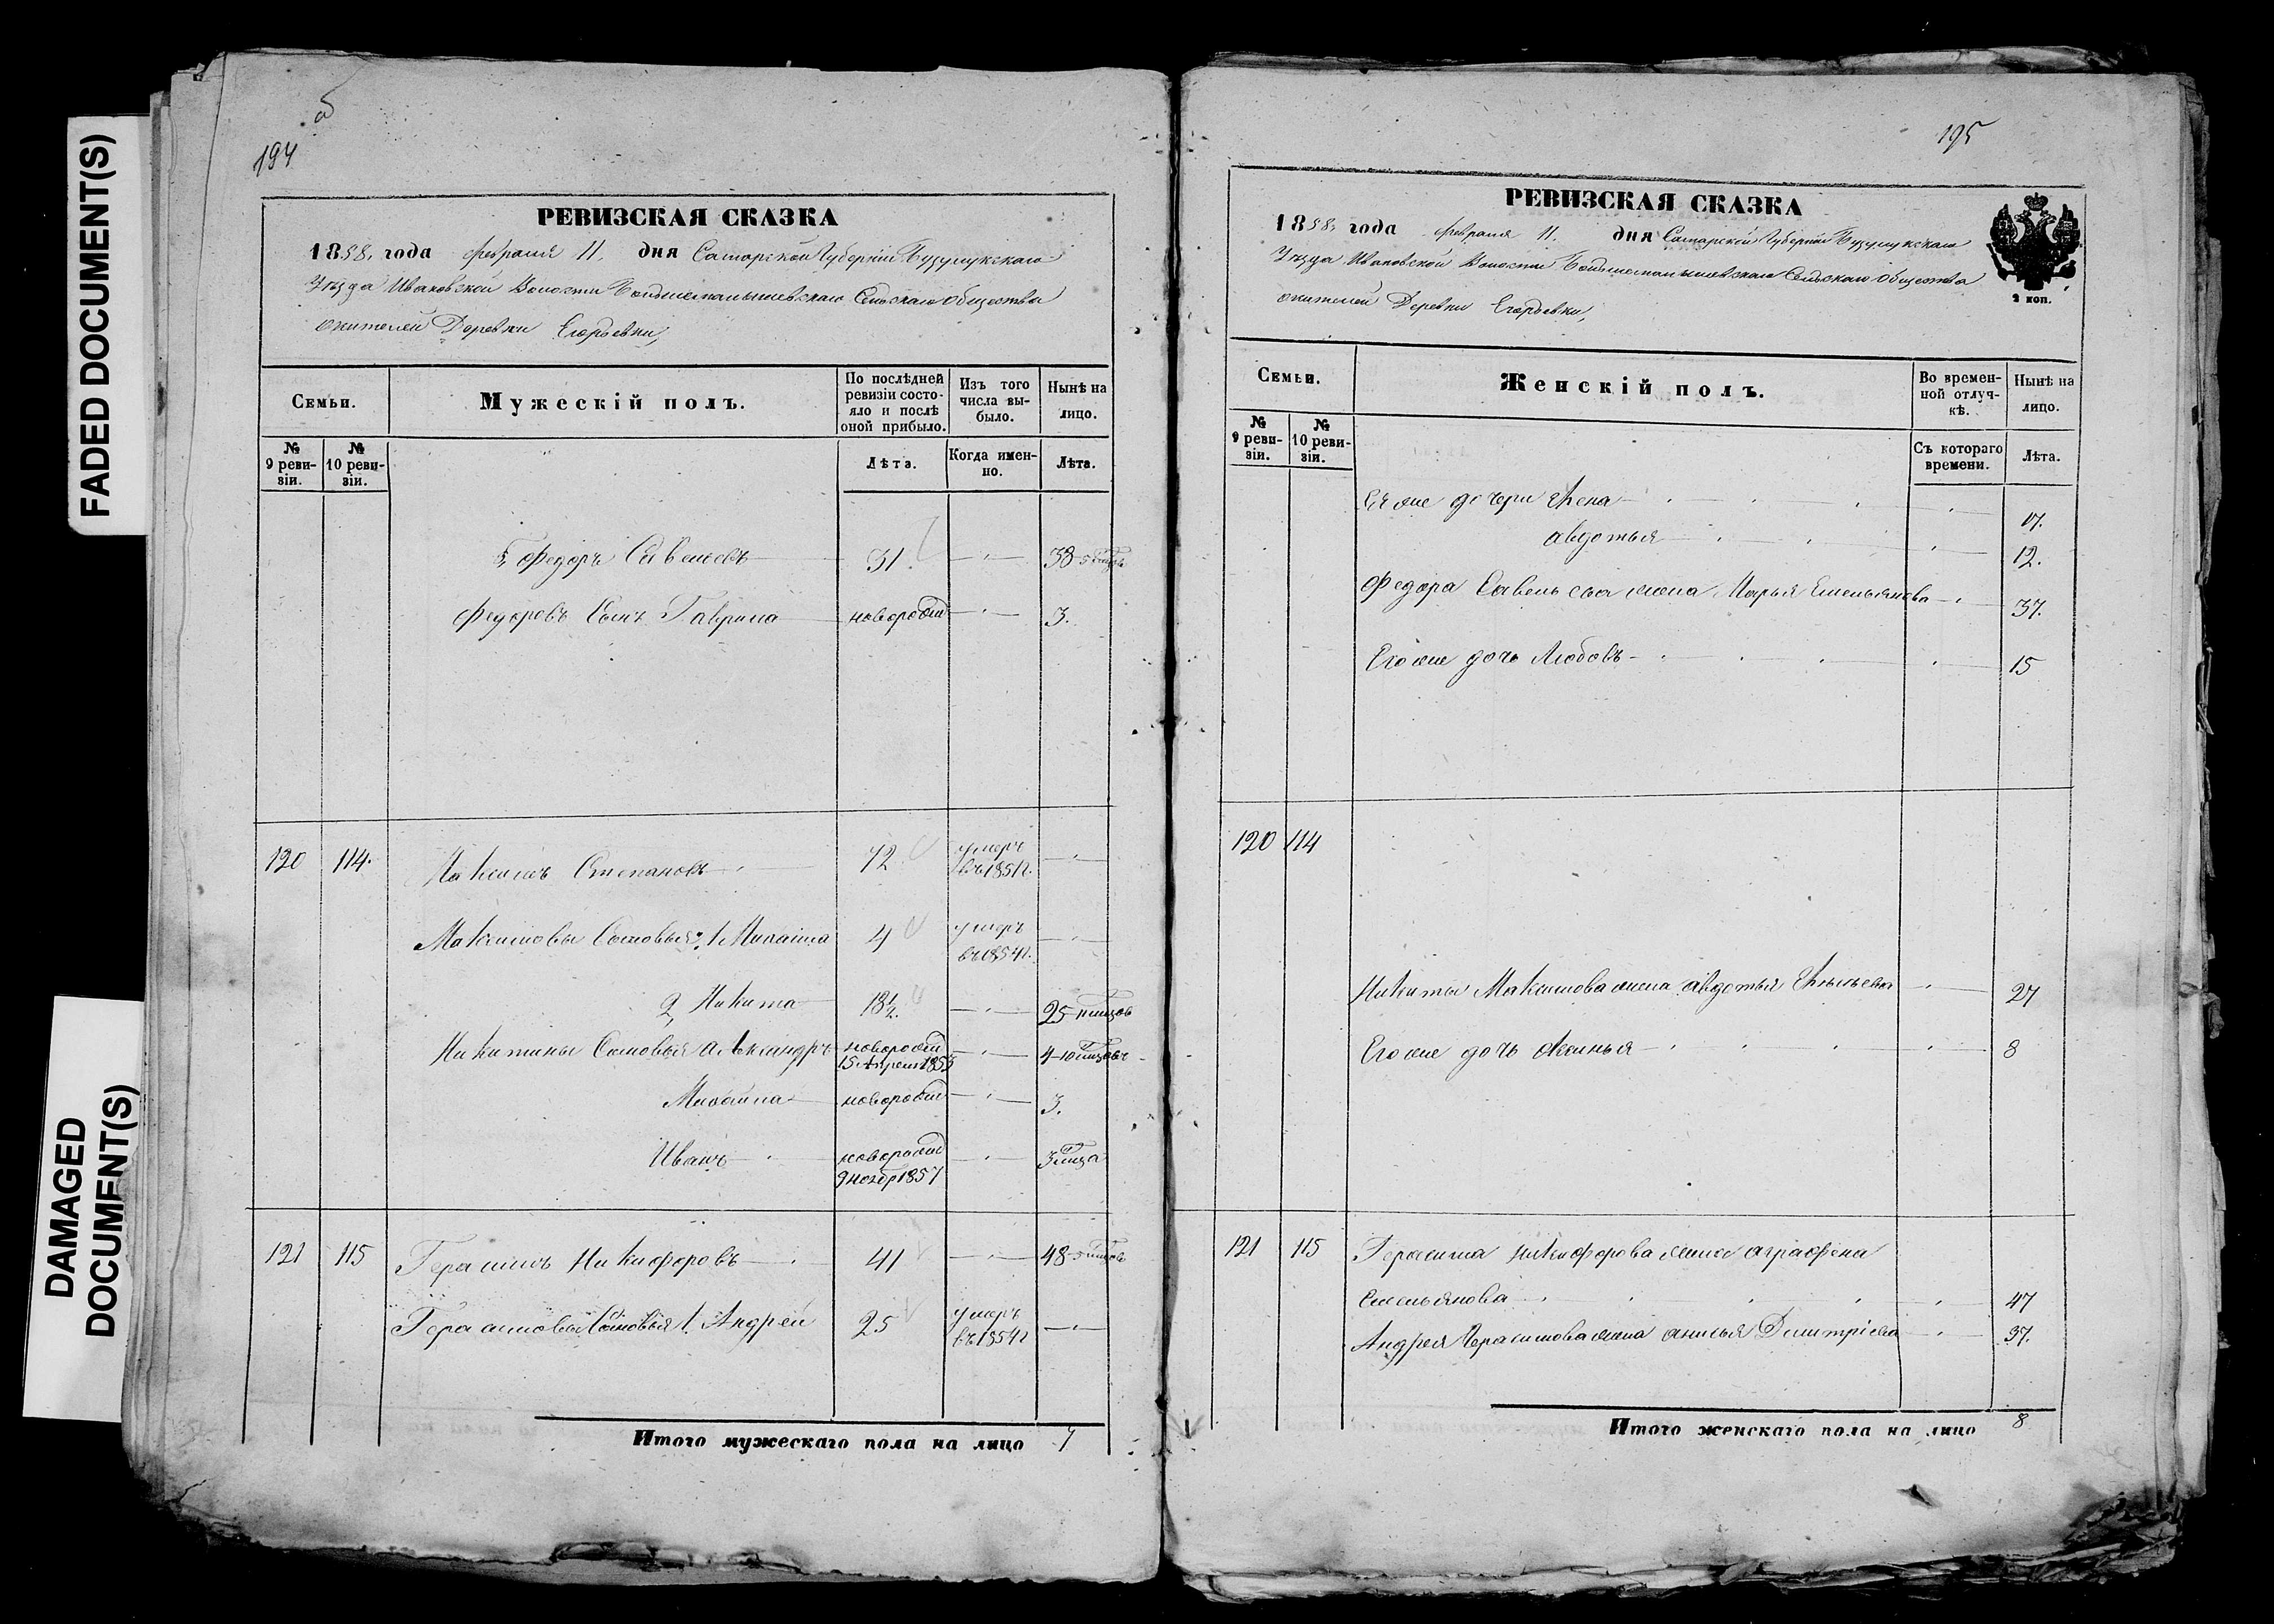 FADED DOCUMENT(S)
DAMAGED
DOCUMENT(S)
194
РЕВИЗСКАЯ СКАЗКА
1858, года февраля 11, дня Самарской Губерніи Бузулукскаго
Уѣзда Ивановской Волости Большемалышевскаго Сельскаго общества
жителей Деревни Егорьевки,
Семьи.
Мужескій полъ.
По послѣдней ревизіи состояло и послѣ оной прибыло.
Изъ того числа выбыло.
Нынѣ на лицо.
№ 9 ревизіи.
№ 10 ревизіи.
Лѣта.
Когда именно.
Лѣта.
5, Федоръ Савельевъ 31 38-5 мцовъ
Федоровъ Сынъ Гаврила новорожд 3.
120 114. Максимъ Степановъ 72 умеръ въ 1851 г.
Максимовы Сыновья: 1 Михаила 4 умеръ въ 1854 г.
2, Никита 18½ 25 мцовъ
Никитины Сыновья Александръ новорожд 15 Апреля 1853 4-10 мцовъ
Михайла новорожд 3.
Иванъ новорожд 9 ноябр 1857 3 мца
121 115 Герасимъ Никифоровъ 41 48-5 мцовъ
Герасимовы Сыновья 1. Андрей 25 умеръ въ 1854 г
Итого мужескаго пола на лицо 7
195
РЕВИЗСКАЯ СКАЗКА
1858, года февраля 11. дня Самарской Губерніи Бузулукскаго
Уѣзда Ивановской Волости Большемалышевскаго Сельскаго общества
жителей Деревни Егорьевки,
2 коп.
Семьи.
Женскій полъ.
Во временной отлучкѣ.
Нынѣ на лицо.
№ 9 ревизіи.
№ 10 ревизіи.
Съ котораго времени.
Лѣта.
Ея же дочери 17.
авдотья 12.
Федора Савельева жена Марья Емельянова 37.
Его же дочь Любовь 15
120 114
Никиты Максимова жена авдотья 27
Его же дочь Аксинья 8
121 115 Герасима Никифорова жена аграфена
Емельянова 47
Андрея Герасимова жена анисья Димитріева 37.
Итого женскаго пола на лицо 8